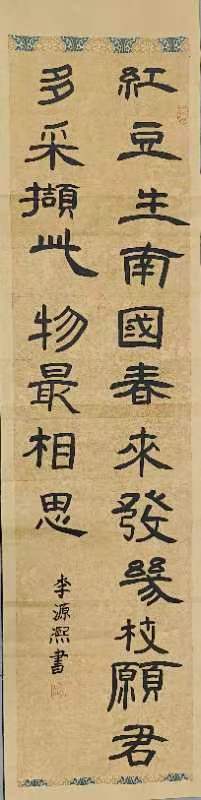 紅豆生南國春來發幾枝願君
多采擷此物最相思
李源熙書